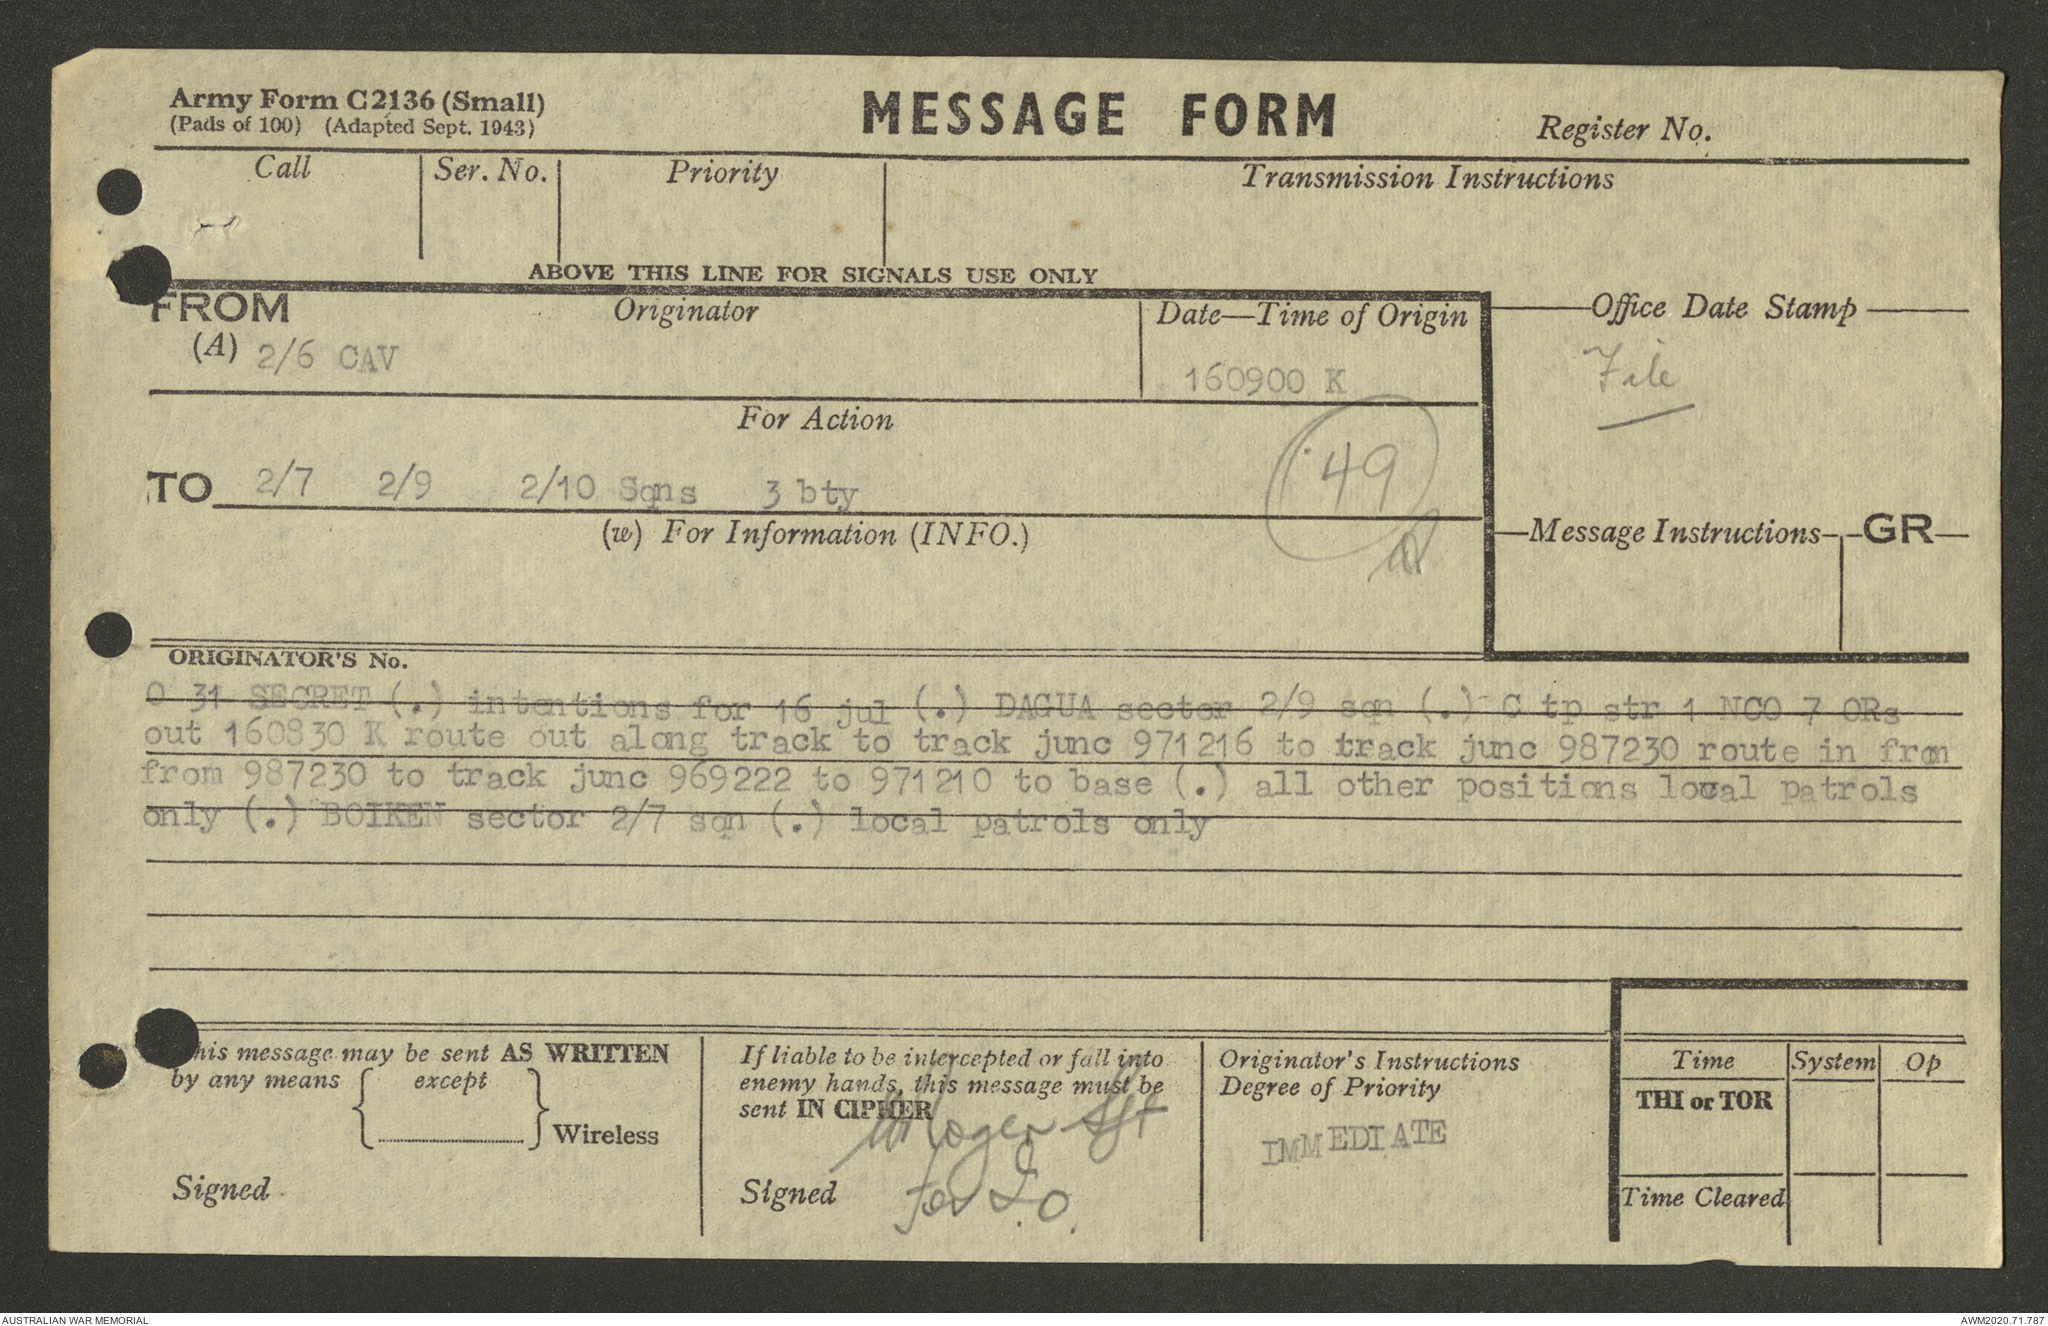 Army Form C2136 (Small)
(Pads of 100) (Adapted Sept. 1943)
MESSAGE FORM
Register No.
Call
Ser. No.
Priority
Transmission Instructions
ABOVE THIS LINE FOR SIGNALS USE ONLY
FROM
(A) 2/6 CAV
Originator
Date—Time of Origin
160900 K
Office Date Stamp
File
For Action
TO 2/7 2/9 2/10 Sqns 3 bty
49
(w) For Information (INFO.)
Message Instructions
GR
ORIGINATOR'S No.
O 31 SECRET (.) intentions for 16 jul (.) DAGUA sector 2/9 sqn (.) C tp str 1 NCO 7 ORs
out 160830 K route out along track to track junc 971216 to track junc 987230 route in from
from 987230 to track junc 969222 to 971210 to base (.) all other positions local patrols
only (.) BOIKEN sector 2/7 sqn (.) local patrols only
his message may be sent AS WRITTEN
by any means { except } Wireless
Signed
If liable to be intercepted or fall into
enemy hands, this message must be
sent IN CIPHER
Signed for I.O.
Originator's Instructions
Degree of Priority
IMMEDIATE
Time
System
Op
THI or TOR
Time Cleared
AUSTRALIAN WAR MEMORIAL
AWM2020.71.787